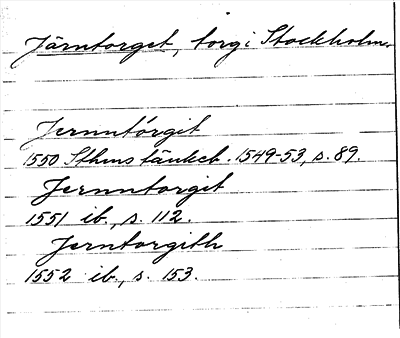 Järntorget, torg i Stockholm.
Jernntórgit
1550 Sthms tänkeb. 1549-53, s. 89.
Jernntorgit
1551 ib., s. 112.
Jerntorgith
1552 ib., s. 153.